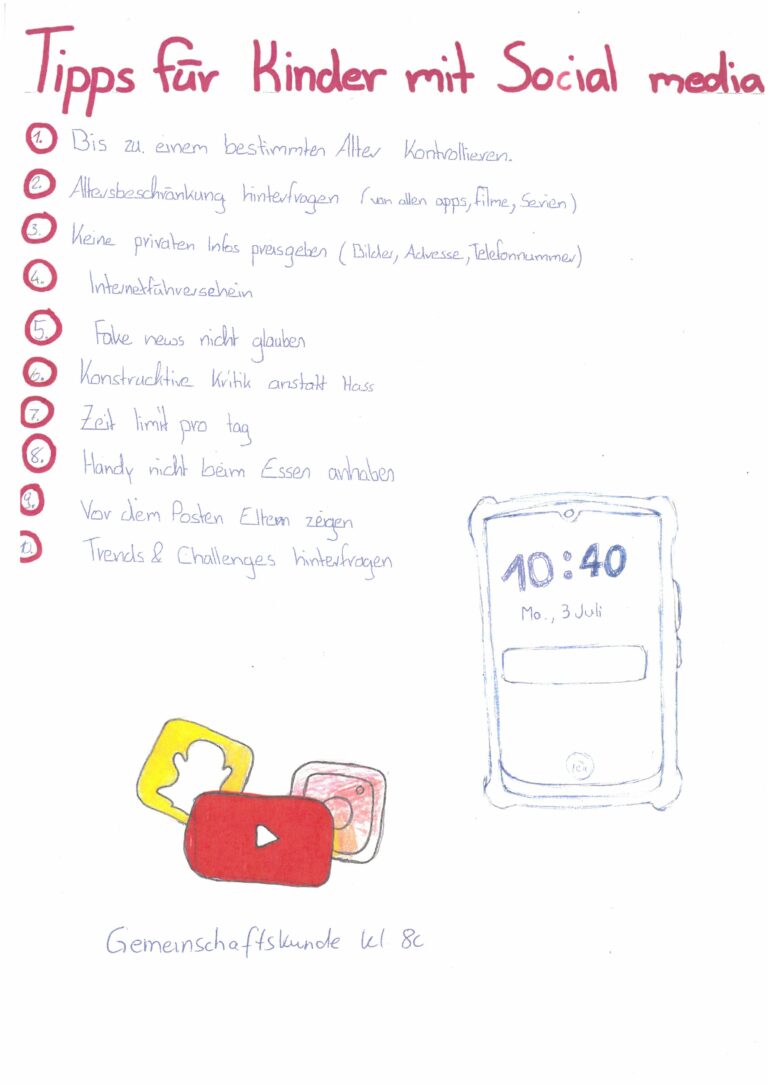 Tipps für Kinder mit Social media
1. Bis zu einem bestimmten Alter Kontrollieren.
2. Altersbeschränkung hinterfragen (von allen apps, filme, Serien)
3. Keine privaten Infos preisgeben (Bilder, Adresse, Telefonnummer)
4. Internetführerschein
5. Fake news nicht glauben
6. Konstrucktive Kritik anstatt Hass
7. Zeit limit pro tag
8. Handy nicht beim Essen anhaben
9. Vor dem Posten Eltern zeigen
10. Trends & Challenges hinterfragen
10:40
Mo., 3 Juli
Gemeinschaftskunde kl. 8c